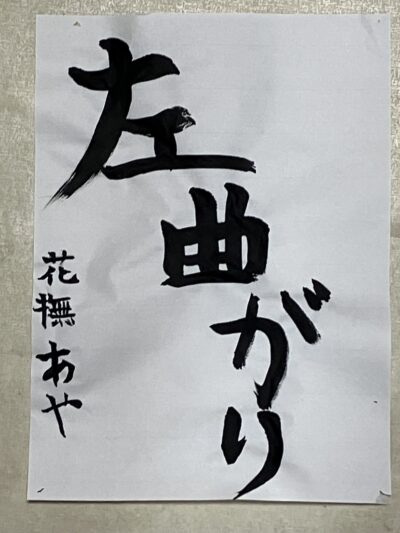 左曲がり
花撫あや